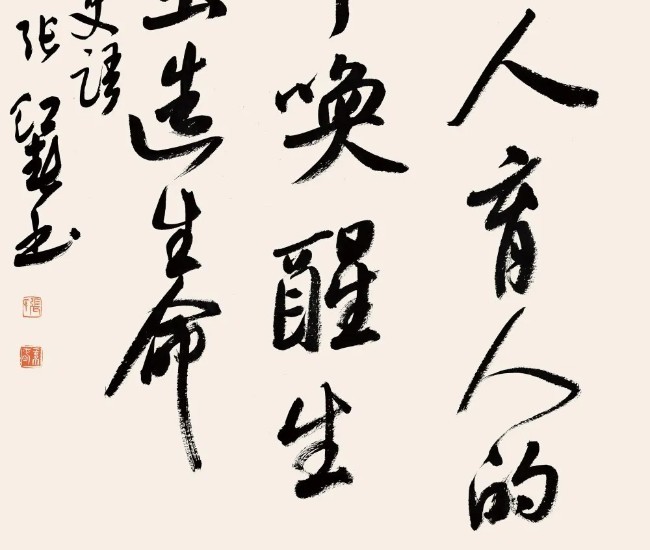 人育人的
唤醒生
造生命
语
张红春书